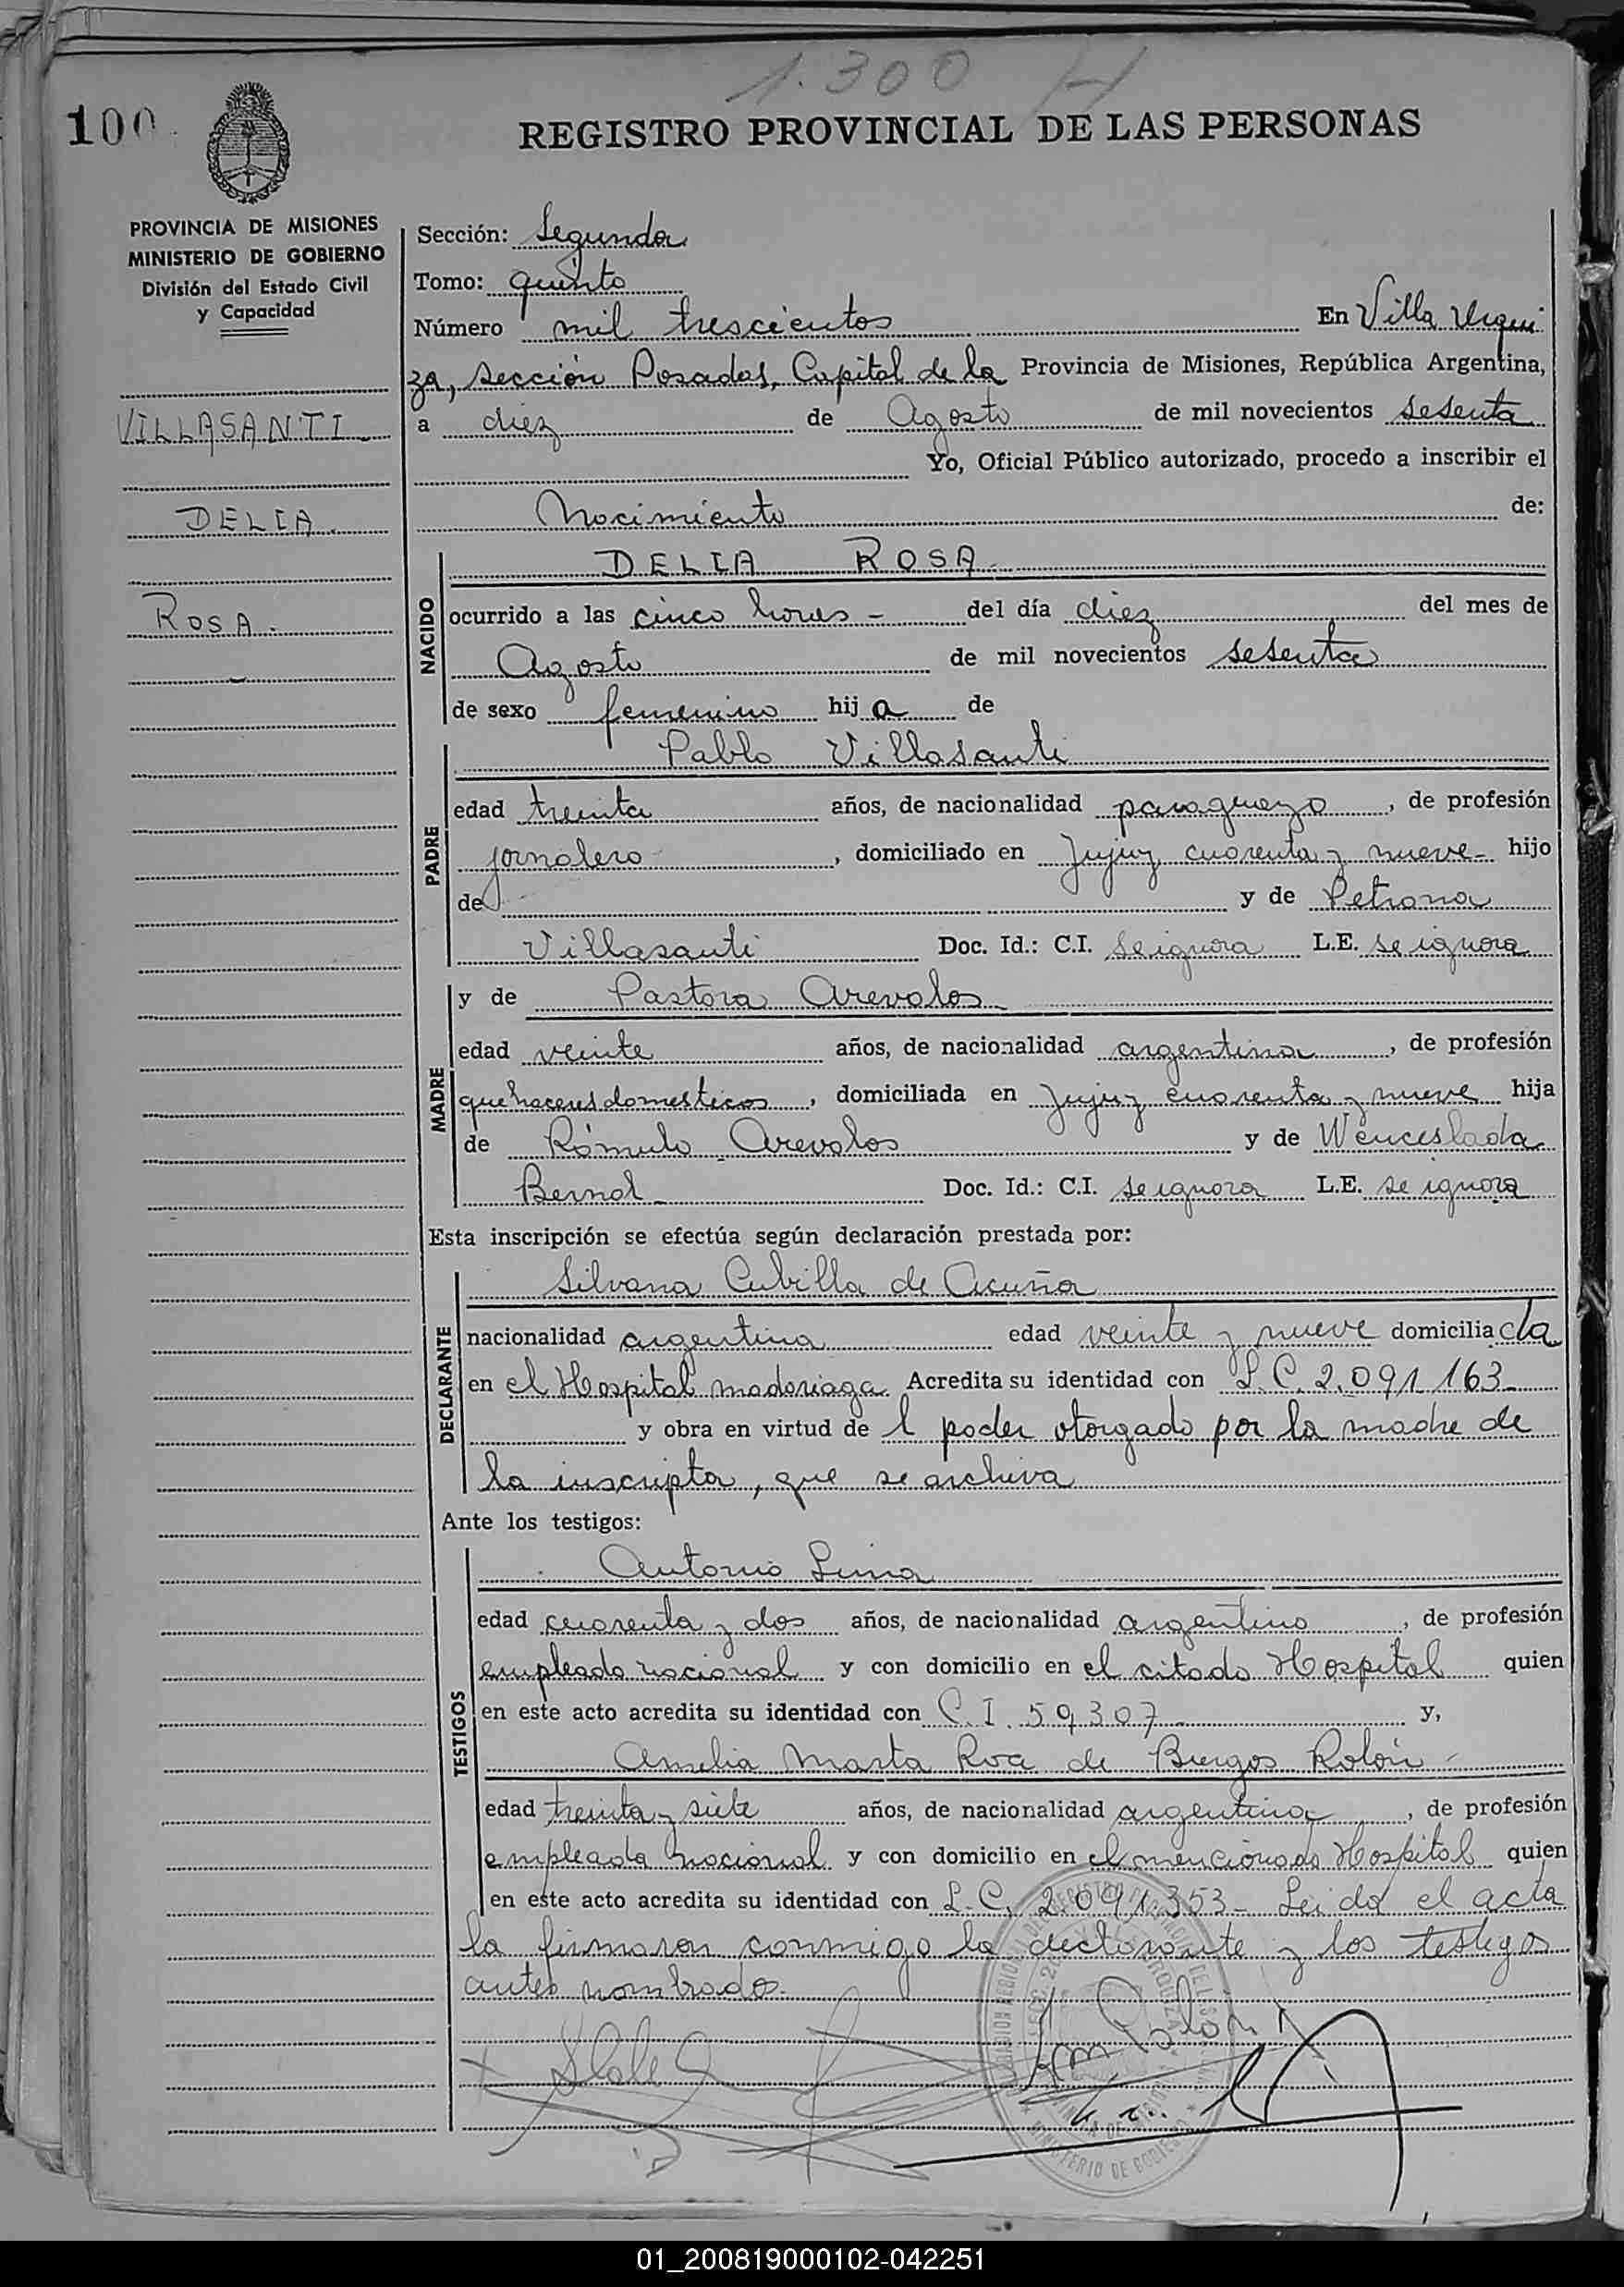 1.300 H
100
REGISTRO PROVINCIAL DE LAS PERSONAS
PROVINCIA DE MISIONES
MINISTERIO DE GOBIERNO
División del Estado Civil
y Capacidad
VILLASANTI
DELIA
ROSA.
Sección: Segunda
Tomo: quinto
Número mil trescientos En Villa Urqui
za, sección Posadas, Capital de la Provincia de Misiones, República Argentina,
a diez de Agosto de mil novecientos sesenta
Yo, Oficial Público autorizado, procedo a inscribir el
Nacimiento de:
NACIDO
DELIA ROSA
ocurrido a las cinco horas - del día diez del mes de
Agosto de mil novecientos sesenta
de sexo femenino hija de
PADRE
Pablo Villasanti
edad treinta años, de nacionalidad paraguayo, de profesión
jornalero, domiciliado en Jujuy cuarenta y nueve - hijo
de y de Petrona
Villasanti Doc. Id.: C.I. se ignora L.E. se ignora
MADRE
y de Pastora Arevalos
edad veinte años, de nacionalidad argentina, de profesión
quehaceres domesticos, domiciliada en Jujuy cuarenta y nueve hija
de Rómulo Arevalos y de Wenceslada
Bernal Doc. Id.: C.I. se ignora L.E. se ignora
Esta inscripción se efectúa según declaración prestada por:
DECLARANTE
Silvana Cubilla de Acuña
nacionalidad argentina edad veinte y nueve domiciliada
en el Hospital madariaga. Acredita su identidad con L.C. 2.091.163
y obra en virtud de l poder otorgado por la madre de
la inscripta, que se archiva
Ante los testigos:
TESTIGOS
Antonio Luna
edad cuarenta y dos años, de nacionalidad argentino, de profesión
empleado nacional y con domicilio en el citado Hospital quien
en este acto acredita su identidad con C.I. 59307 y,
Amelia Marta Roa de Burgos Rolón -
edad treinta y siete años, de nacionalidad argentina, de profesión
empleada nacional y con domicilio en el mencionado Hospital quien
en este acto acredita su identidad con L.C. 2.091.353 - Leida el acta
la firmaron conmigo la declarante y los testigos
antes nombrados.
01_200819000102-042251